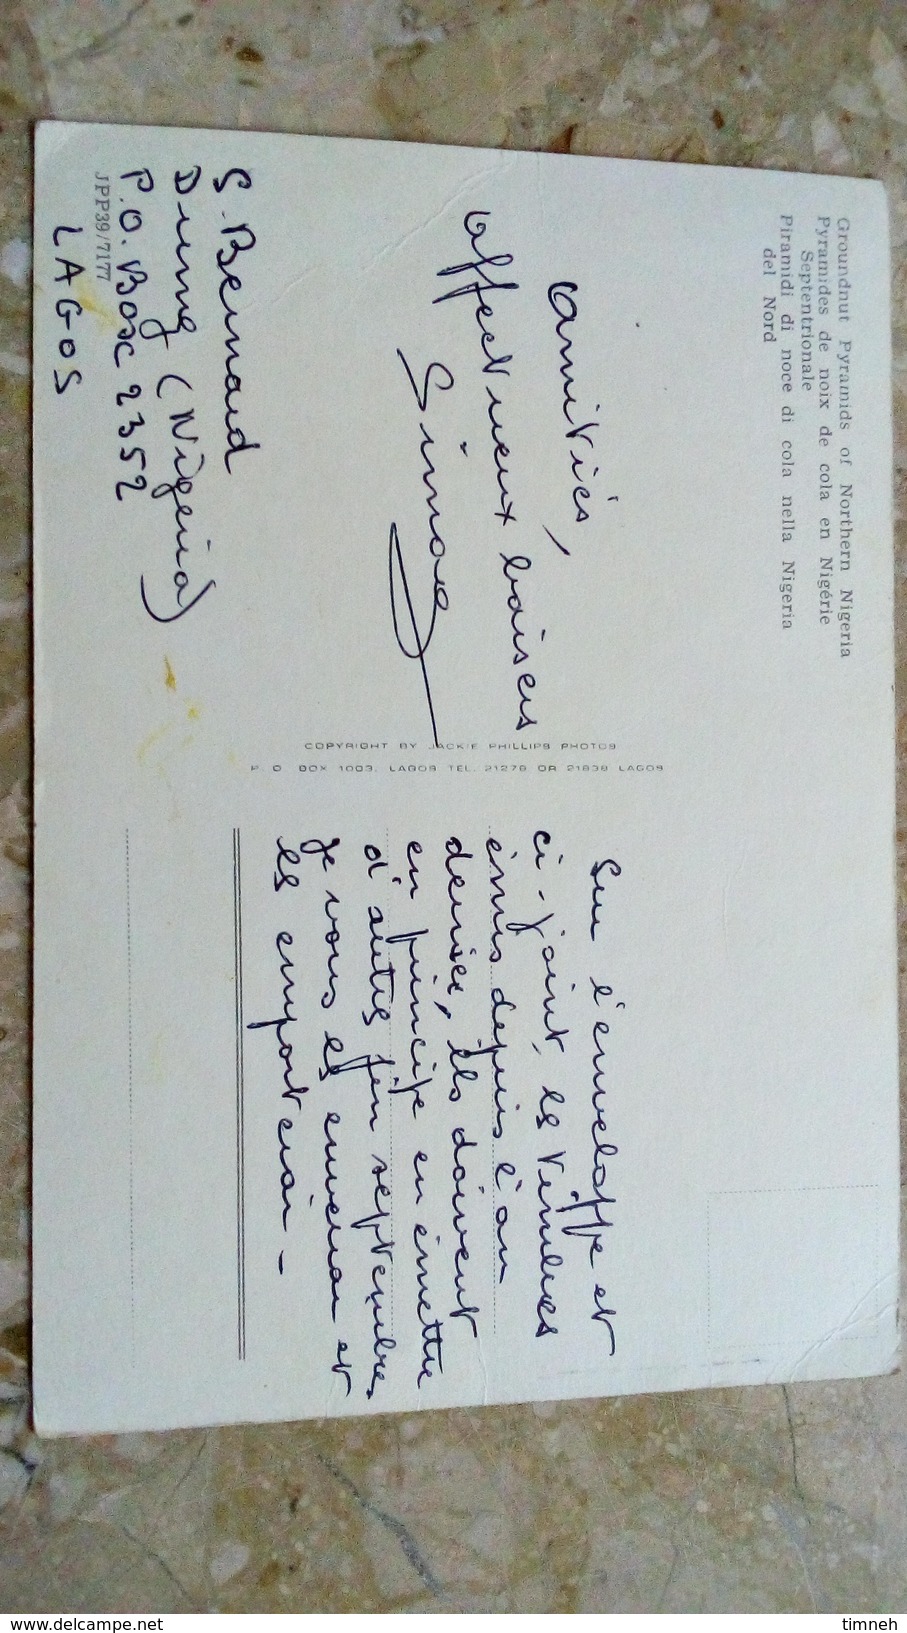 Groundnut Pyramids of Northern Nigeria
Pyramides de noix de cola en Nigérie
Septentrionale
Piramidi di noce di cola nella Nigeria
del Nord
Amitiés,
affectueux baisers
Simone
S. Bernard
Dumez (Nigeria)
P.O. Box 2352
JPP39/7177
LAGOS
COPYRIGHT BY JACKIE PHILLIPS PHOTOS
P. O. BOX 1003, LAGOS TEL. 21276 OR 21838 LAGOS
Sur l'enveloppe et
ci-joint, les timbres
émis depuis l'an
dernier, ils doivent
en principe en émettre
d'autres fin septembre,
je vous les enverrai et
les emporterai -
delcampe.net
timneh